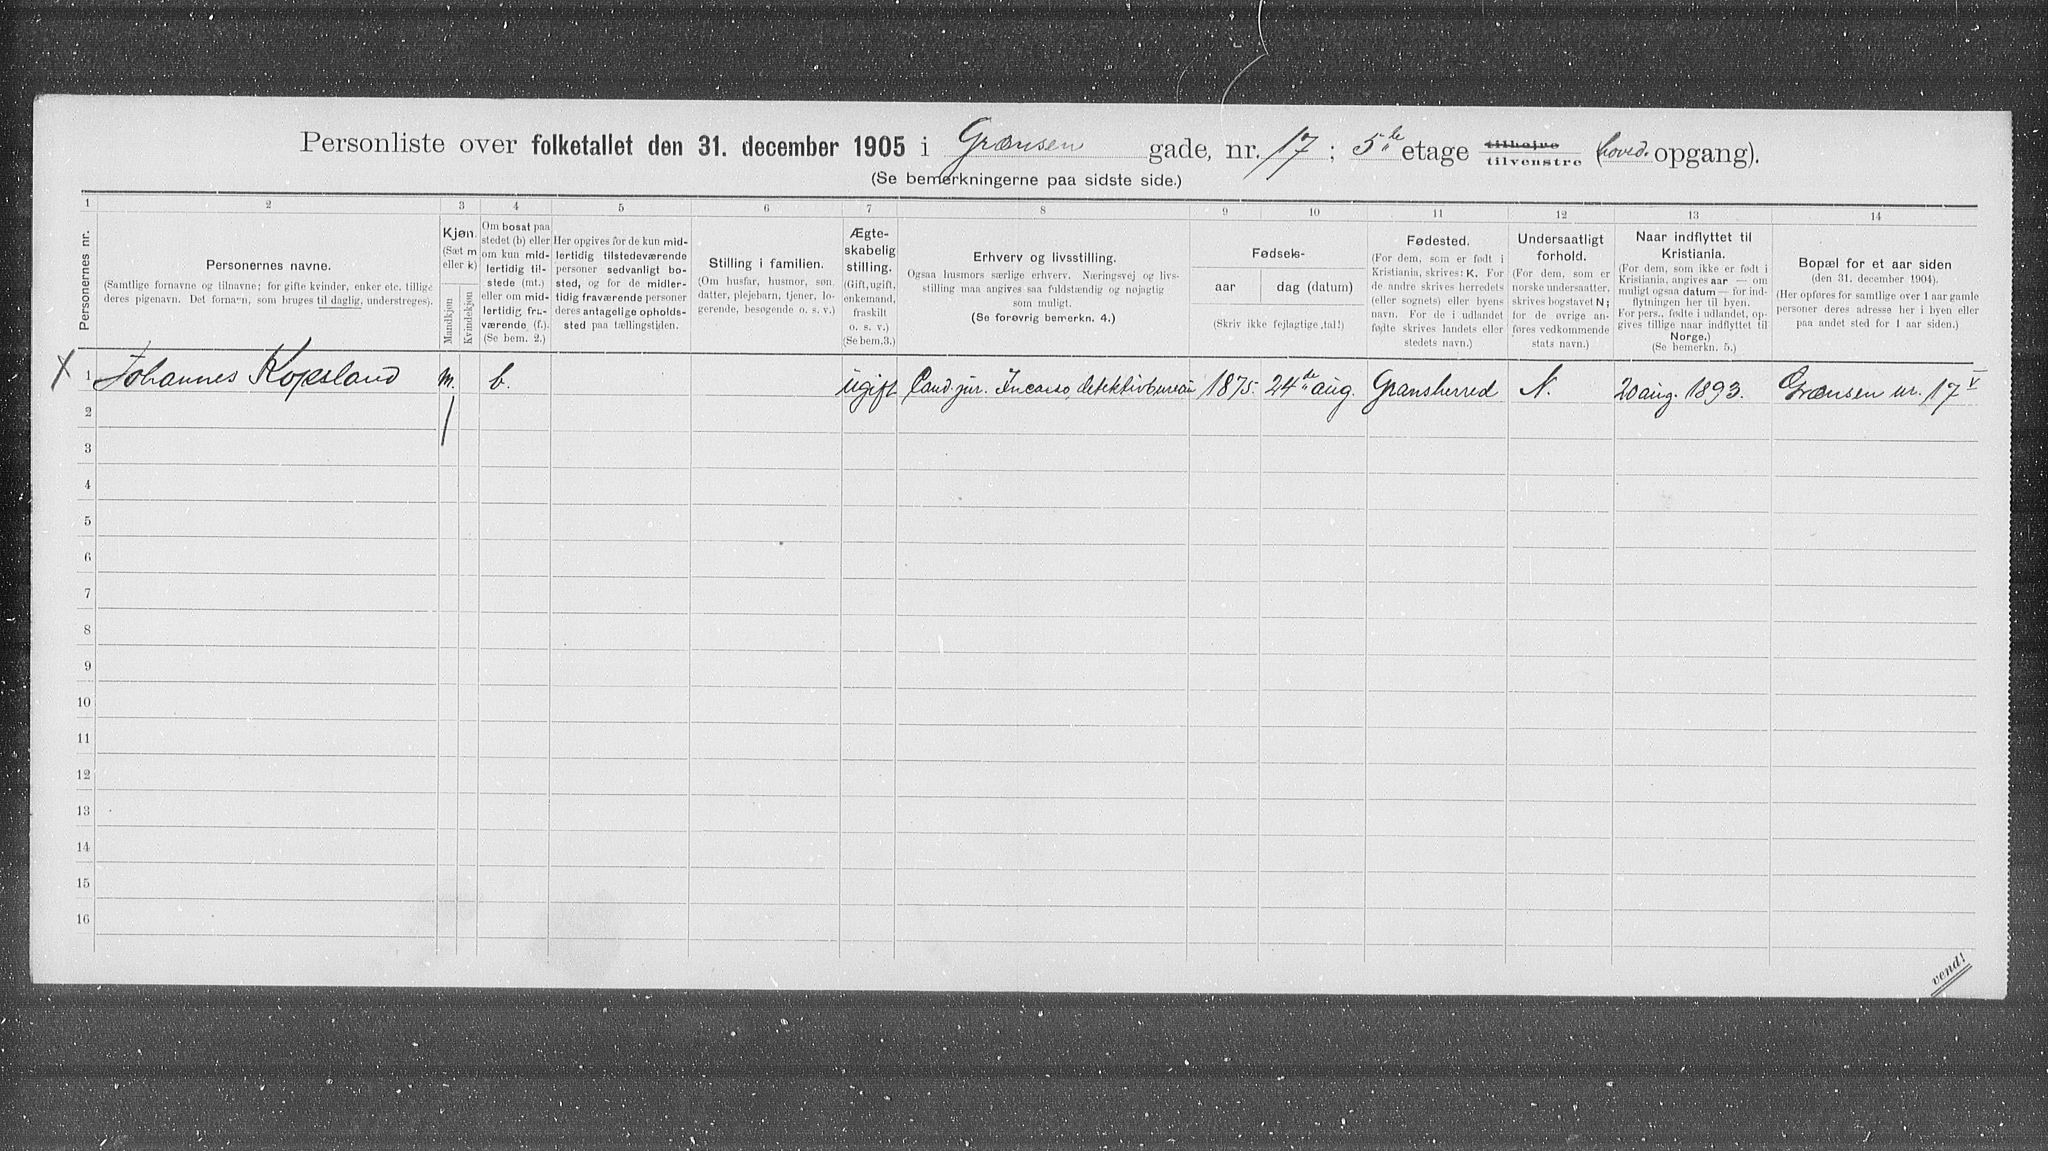 Personliste over folketallet den 31. december 1905 i Grænsen gade, nr. 17; 5te etage tilhøjre tilvenstre (hoved. opgang).
(Se bemerkningerne paa sidste side.)
1 2 3 4 5 6 7 8 9 10 11 12 13 14
Personernes nr.
Personernes navne.
(Samtlige fornavne og tilnavne; for gifte kvinder, enker etc. tillige
deres pigenavn. Det fornavn, som bruges til daglig, understreges).
Kjøn.
(Sæt m
eller k)
Mandkjøn
Kvindekjøn
Om bosat paa
stedet (b) eller
om kun mid-
lertidig til-
stede (mt.)
eller om mid-
lertidig fra-
værende (f.).
(Se bem. 2.)
Her opgives for de kun mid-
lertidig tilstedeværende
personer sedvanligt bo-
sted, og for de midler-
tidig fraværende personer
deres antagelige opholds-
sted paa tællingstiden.
Stilling i familien.
(Om husfar, husmor, søn,
datter, plejebarn, tjener, lo-
gerende, besøgende o. s. v.)
Ægte-
skabelig
stilling.
(Gift, ugift,
enkemand,
fraskilt
o. s. v.)
(Se bem. 3.)
Erhverv og livsstilling.
Ogsaa husmors særlige erhverv. Næringsvej og livs-
stilling maa angives saa fuldstændig og nøjagtig
som muligt.
(Se forøvrig bemerkn. 4.)
Fødsels-
aar
dag (datum)
(Skriv ikke fejlagtige tal!)
Fødested.
(For dem, som er født i
Kristiania, skrives: K. For
de andre skrives herredets
(eller sognets) eller byens
navn. For de i udlandet
fødte skrives landets eller
stedets navn.)
Undersaatligt
forhold.
(For dem, som er
norske undersaatter,
skrives bogstavet N;
for de øvrige an-
føres vedkommende
stats navn.)
Naar indflyttet til
Kristiania.
(For dem, som ikke er født i
Kristiania, angives aar — om
muligt ogsaa datum — for ind-
flytningen her til byen.
For pers., fødte i udlandet, op-
gives tillige naar indflyttet til
Norge.)
(Se bemerkn. 5.)
Bopæl for et aar siden
(den 31. december 1904).
(Her opføres for samtlige over 1 aar gamle
personer deres adresse her i byen eller
paa andet sted for 1 aar siden.)
X 1 Johannes Kopsland m. b. ugift Cand jur. Incasso, detektivbureau 1875. 24de aug. Gransherred N. 20 aug. 1893. Grænsen nr. 17 V
2
3
4
5
6
7
8
9
10
11
12
13
14
15
16
vend!